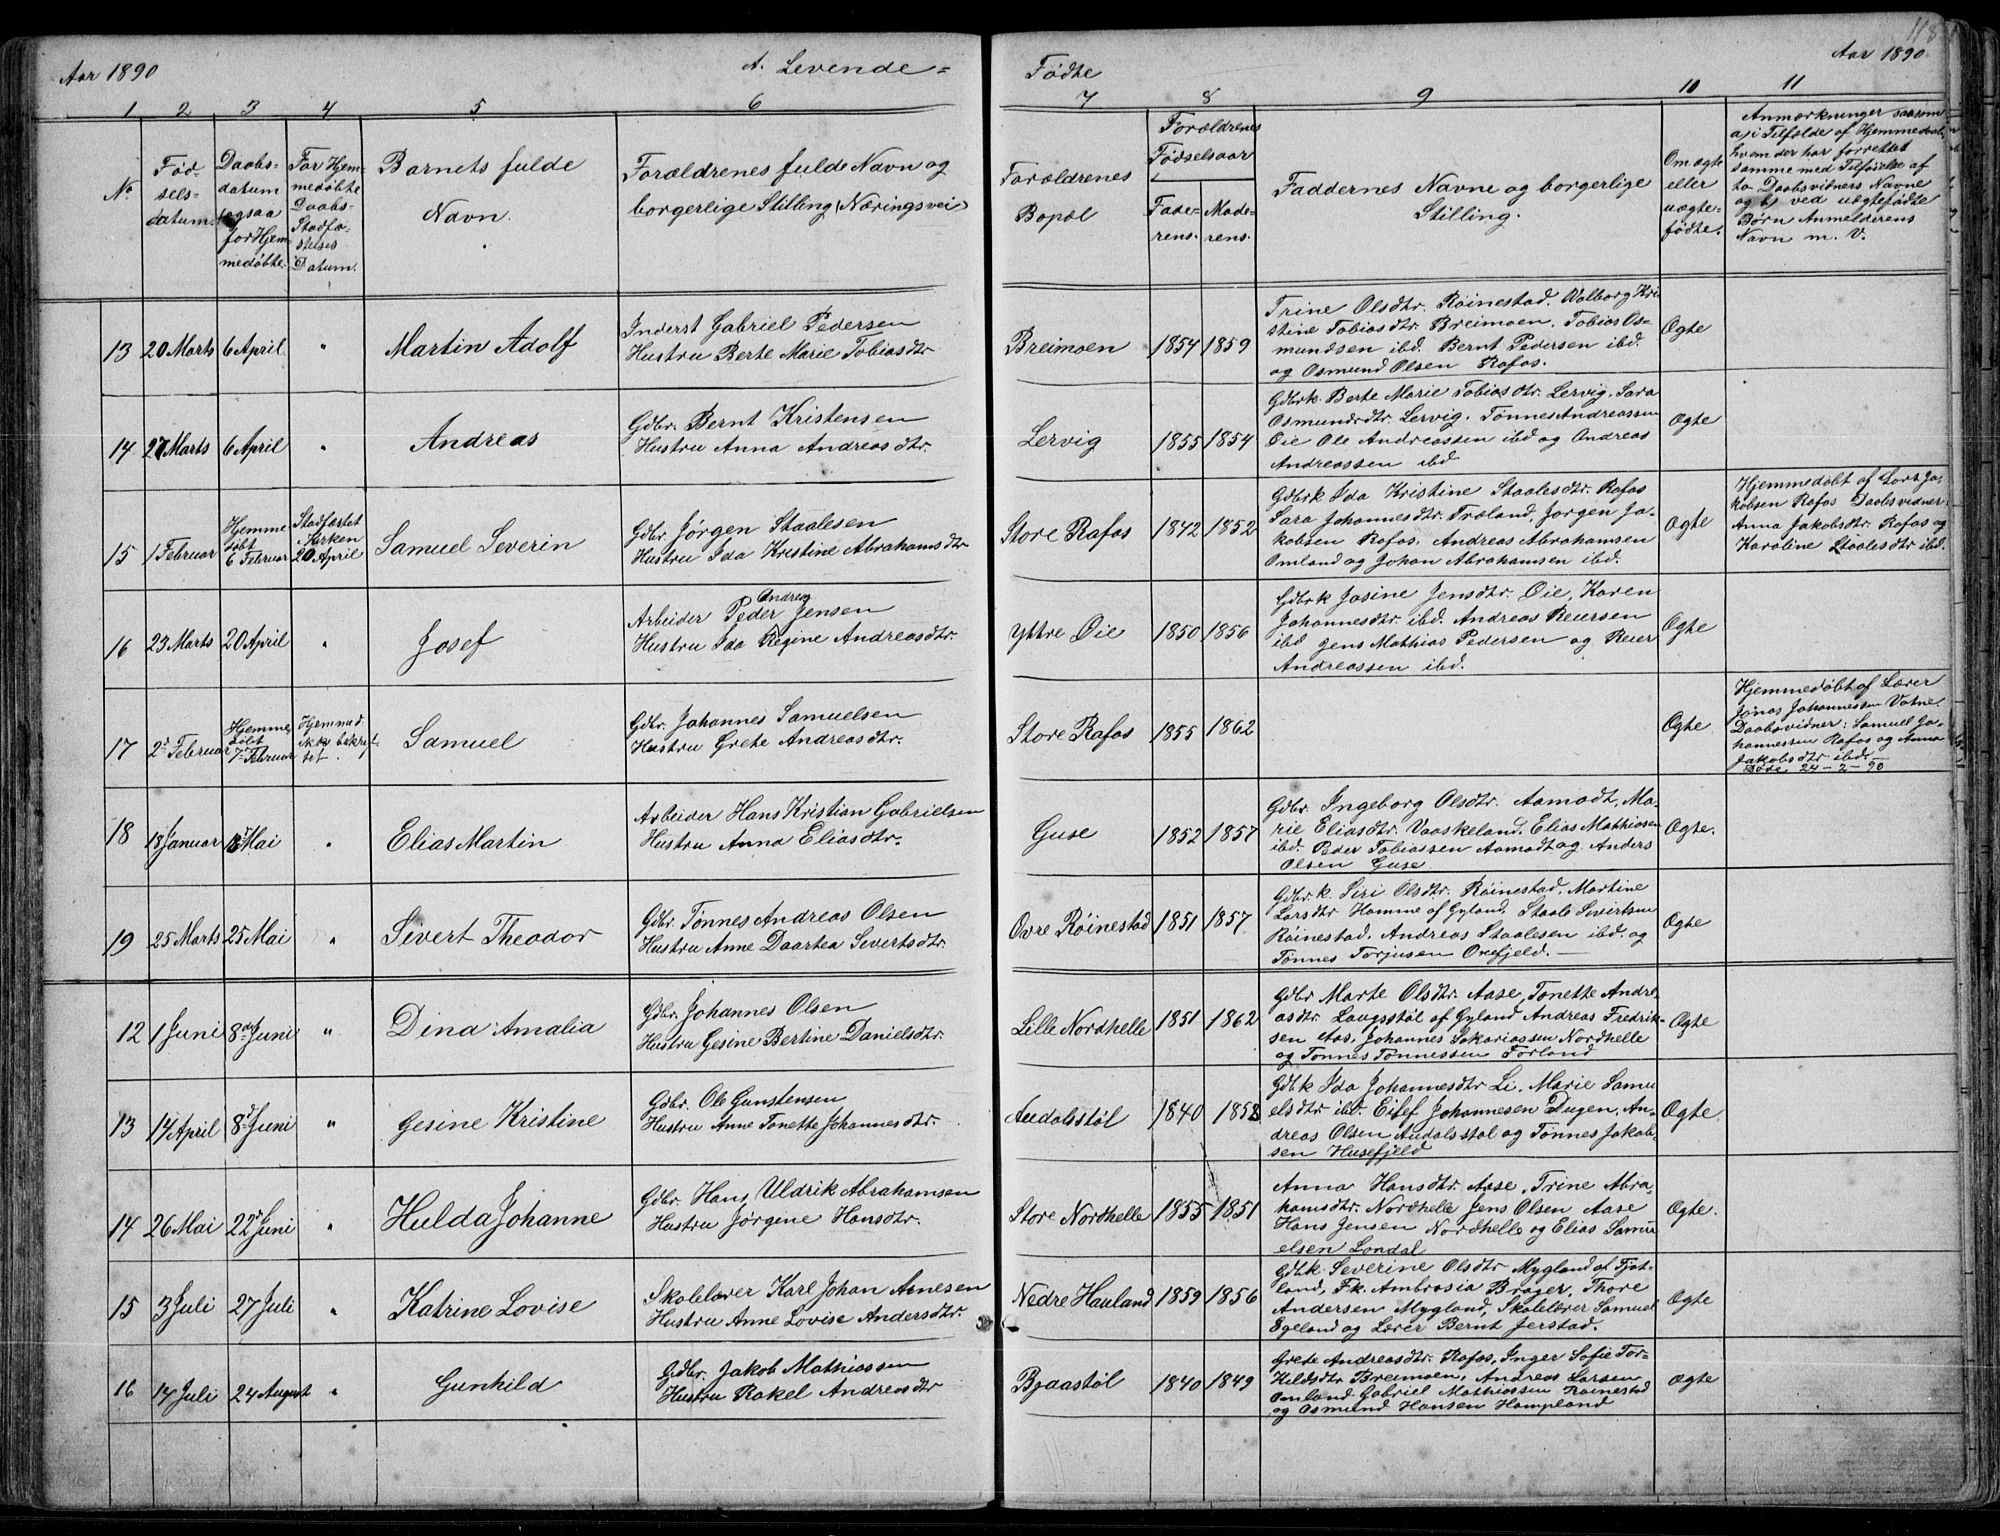 118
Aar 1890
A. Levende=
Fødte
Aar 1890
1 2 3 4 5 6
7 8 9 10 11
No
Fød-
sels-
datum.
Daabs-
datum
(ogsaa
for Hjem-
medøbte.
For Hjem-
medøbte
Daabs-
Stadfæ-
stelses
Datum.
Barnets fulde
Navn.
Forældrenes fulde Navn og
borgerlige Stilling (Næringsvei)
Forældrenes
Bopæl
Forældrenes
Fødselsaar
Fade-
rens.
Mode-
rens.
Faddernes Navne og borgerlige
Stilling.
Om ægte
eller
uægte-
fødte.
Anmærkninger saasom
a) i Tilfælde af Hjemmedaab,
hvem der har forrettet
samme med Tilføielse af
to Daabsvidners Navne
og b) ved uægtefødte
Børn Anmelderens
Navn m. V.
13 20 Marts 6 April " Martin Adolf
Inderst Gabriel Pedersen
Hustru Berte Marie Tobiasdtr
Breimoen 1854 1859
Trine Olsdtr. Røinestad. Valborg Kri
stine Tobiasdtr. Breimoen. Tobias Os-
mundsen ibd. Bernt Pedersen ibd.
og Osmund Olsen Rafos.
Ægte
14 27 Marts 6 April " Andreas
Gdbr. Bernt Kristensen
Hustru Anna Andreasdtr.
Lervig 1855 1854
Gdbrk. Berte Marie Tobiasdtr. Lervig, Sara
Osmundsdtr. Lervig. Tønnes Andreassen
Øie Ole Andreassen ibd og Andreas
Andreassen ibd
Ægte
15 1 Februar
Hjemme
døbt
6 Februar
Stadfæstet
i Kirken
20 April
Samuel Severin
Gdbr. Jørgen Staalesen
Hustru Ida Kristine Abrahamsdtr
Store Rafos 1842 1852
Gdbrk Ida Kristine Staalesdtr. Rafos
Sara Johannesdtr. Træland, Jørgen Ja-
kobsen Rafos, Andreas Abrahamsen
Omland og Johan Abrahamsen ibd.
Ægte
Hjemmedøbt af Lars Ja-
kobsen Rafos Daabsvidner:
Anna Jakobsdtr. Rafos og
Karoline Staalesdtr ibd.
16 23 Marts 20 April " Josef
Andreas
Arbeider Peder Jensen
Hustru Ida Regine Andreasdtr.
Yttre Øie 1850 1856
Gdbrk Josine Jensdtr. Øie, Karen
Johannesdtr. ibd. Andreas Reiersen
ibd Jens Mathias Pedersen og Reier
Andreassen ibd.
Ægte
17 2 Februar
Hjemme
døbt
7 Februar
Hjemmed.
ikke bekræf-
tet.
Samuel
Gdbr. Johannes Samuelsen
Hustru Grete Andreasdtr.
Store Rafos 1855 1862
Ægte
Hjemmedøbt af Lærer
Jonas Johannessen Vatne
Daabsvidner: Samuel Jo-
hannessen Rafos og Anna
Jakobsdtr ibd.
Døde 24-2-90
18 18 Januar Mai " Elias Martin
Arbeider Hans Kristian Gabrielsen
Hustru Anna Eliasdtr.
Guse 1852 1857
Gdbr. Ingeborg Olsdtr. Aamodt, Ma-
rie Eliasdtr. Vaaskeland, Elias Mathiasen
ibd. Peder Tobiassen Aamodt og Anders
Olsen Guse
Ægte.
19 25 Marts 25 Mai " Severt Theodor
Gdbr. Tønnes Andreas Olsen
Hustru Anne Daartea Severtsdtr.
Øvre Røinestad 1851 1857
Gdbr.k Siri Olsdtr. Røinestad, Martine
Larsdtr Homme af Gyland, Staale Sevirtsen
Røinestad, Andreas Staalesen ibd. og
Tønnes Torjusen Orefjeld.
Ægte
12 1 Juni 8de Juni " Dina Amalia
Gdbr. Johannes Olsen
Hustru Gesine Bertine Danielsdtr.
Lille Nordhelle 1851 1862
Gdbr Marte Olsdtr. Aase, Tonette Andre-
asdtr. Laugsstøl af Gyland Andreas Fredrik-
sen Aas, Johannes Sakariassen Nordhelle
og Tønnes Tønnessen Forland
Ægte
13 14 April 8 Juni " Gesine Kristine
Gdbr. Ole Gunstensen
Hustru Anne Tonette Johannesdtr.
Audalsstøl 1840 1852
Gdbk Ida Johannesdtr Li, Marie Samu
elsdtr ibd. Eilef Johannesen Dugen, An-
dreas Olsen Audalsstøl og Tønnes Jakob-
sen Husefjeld
Ægte.
14 26 Mai 22 Juni " Hulda Johanne
Gdbr. Hans Uldrik Abrahamsen
Hustru Jørgine Hansdtr.
Store Nordhelle 1855 1851
Anna Hansdtr. Aase, Trine Abra-
hamsdtr. Nordhelle Jens Olsen Aase
Hans Jensen Nordhelle og Elias Samu
elsen Londal
Ægte.
15 3 Juli 27 Juli " Katrine Lovise
Skolelærer Karl Johan Arnesen
Hustru Anne Lovise Andersdtr.
Nedre Hauland 1859 1856
Gdbk. Severine Olsdtr Mygland af Fjot-
land, Fk. Ambrosia Brager, Thore
Andersen Mygland, Skolelærer Samuel
Egeland og Lærer Bernt Jerstad.
Ægte
16 14 Juli 24 August " Gunhild
Gdbr. Jakob Mathiassen
Hustru Rakel Andreasdtr
Bjaastøl 1840 1849
Grete Andreasdtr. Rafos, Inger Sofie Tor-
kildsdtr Breimoen, Andreas Larsen
Omland Gabriel Mathiassen Røinestad
og Osmund Hansen Hampland
Ægte